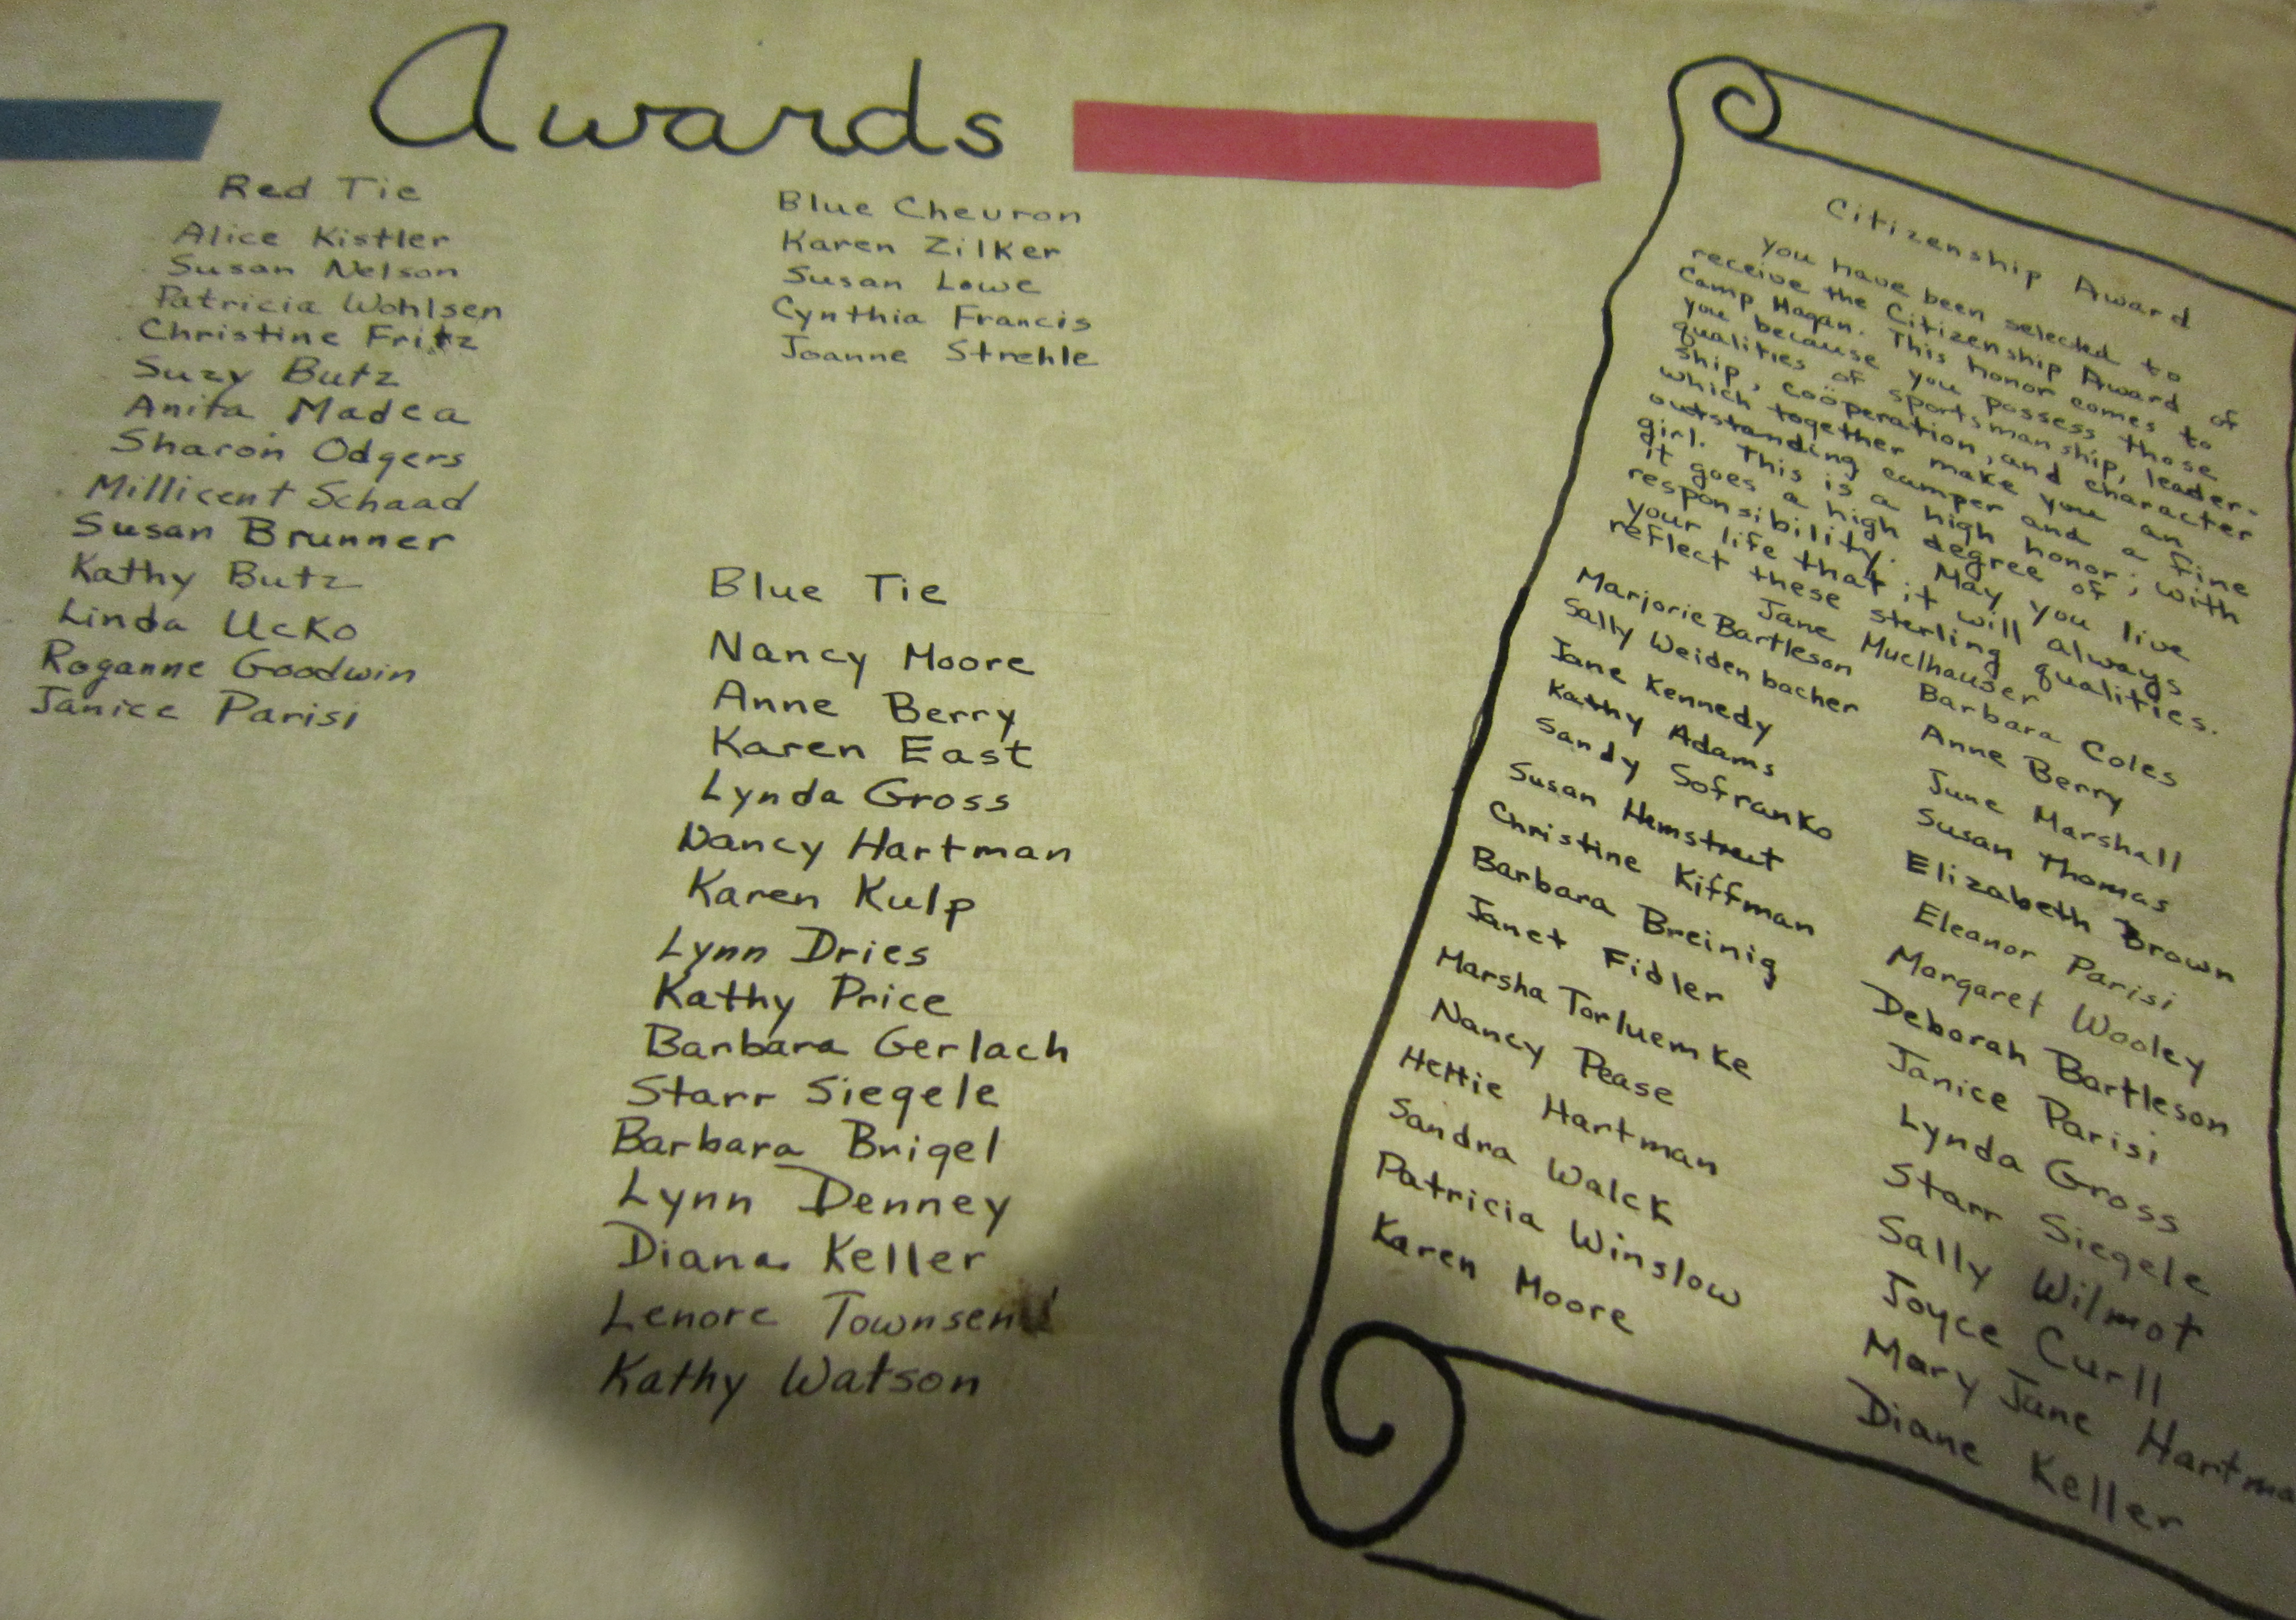 Awards
Red Tie
Alice Kistler
Susan Nelson
Patricia Wohlsen
Christine Fritz
Suzy Butz
Anita Madea
Sharon Odgers
Millicent Schaad
Susan Brunner
Kathy Butz
Linda Ucko
Roganne Goodwin
Janice Parisi
Blue Chevron
Karen Zilker
Susan Lowe
Cynthia Francis
Joanne Strehle
Blue Tie
Nancy Moore
Anne Berry
Karen East
Lynda Gross
Nancy Hartman
Karen Kulp
Lynn Dries
Kathy Price
Barbara Gerlach
Starr Siegele
Barbara Brigel
Lynn Denney
Diana Keller
Lenore Townsend
Kathy Watson
Citizenship Award
You have been selected to
receive the Citizenship Award of
Camp Hagan. This honor comes to
you because you possess those
qualities of sportsmanship, leader-
ship, coöperation, and character
which together make you an
outstanding camper and a fine
girl. This is a high honor; with
it goes a high degree of
responsibility. May you live
your life that it will always
reflect these sterling qualities.
Jane Muelhauser
Marjorie Bartleson
Sally Weidenbacher
Jane Kennedy
Kathy Adams
Sandy Sofranko
Susan Hemstreet
Christine Kiffman
Barbara Breinig
Janet Fidler
Marsha Torluemke
Nancy Pease
Hettie Hartman
Sandra Walck
Patricia Winslow
Karen Moore
Barbara Coles
Anne Berry
June Marshall
Susan Thomas
Elizabeth Brown
Eleanor Parisi
Margaret Wooley
Deborah Bartleson
Janice Parisi
Lynda Gross
Starr Siegele
Sally Wilmot
Joyce Curll
Mary Jane Hartma
Diane Keller